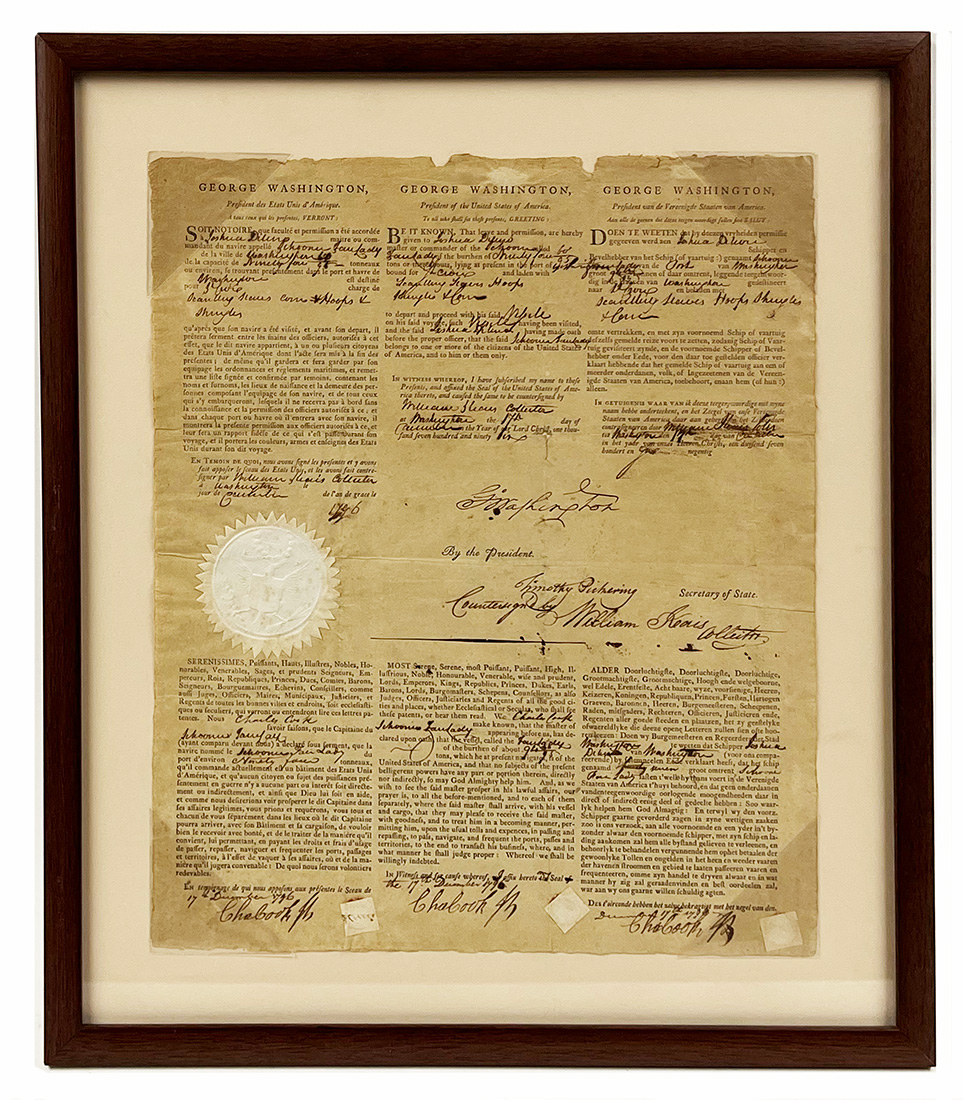 GEORGE WASHINGTON,
Président des Etats Unis d'Amérique.
A tous ceux qui les présentes, VERRONT:
SOIT NOTOIRE, que faculté et permission a été accordée
à Joshua maitre ou com-
mandant du navire appellé Schooner
de la ville de Washington
de la capacité de Ninety four tonneaux
ou environ, se trouvant présentement dans le port et havre de
Washington est destiné
pour St Croix chargé de
Scantling Staves Corn & Hoops &
Shingles
qu'après que son navire a été visité, et avant son départ, il
prêtera serment entre les mains des officiers, autorisés à cet
effet, que le dit navire appartient, à un ou plusieurs citoyens
des Etats Unis d'Amérique dont l'acte sera mis à la fin des
présentes; de même qu'il gardera et fera garder par son
équipage les ordonnances et réglemens maritimes, et remet-
tra une liste signée et confirmée par temoins, contenant les
noms et surnoms, les lieux de naissance et la demeure des per-
sonnes composant l'equipage de son navire, et de tous ceux
qui s'y embarqueront, lesquels il ne recevra pas à bord sans
la connoissance et la permission des officiers autorisés à ce; et
dans chaque port ou havre où il entrera avec son navire, il
montrera la présente permission aux officiers autorisés à ce, et
leur fera un rapport fidèle de ce qui s'est passé durant son
voyage, et il portera les couleurs, armes, et enseignes des Etats
Unis durant son dit voyage.
EN TEMOIN DE QUOI, nous avons signé les presentes et y avons
fait apposer le sceau des Etats Unis, et les avons fait contre-
signer par William Keais Collector
à Washington le
jour de December de l'an de grace le
1796
GEORGE WASHINGTON,
President of the United States of America.
To all who shall see these presents, GREETING:
BE IT KNOWN, That leave and permission, are hereby
given to Joshua
master or commander of the Schooner called
of the burthen of Ninety four
tons or thereabouts, lying at present in the port of
bound for St Croix and laden with
Scantling Staves Hoops
Shingles & Corn
to depart and proceed with his said
on his said voyage, such having been visited,
and the said Joshua having made oath
before the proper officer, that the said Schooner
belongs to one or more of the citizens of the United States
of America, and to him or them only.
IN WITNESS WHEREOF, I have subscribed my name to these
Presents, and affixed the Seal of the United States of Ame-
rica thereto, and caused the same to be countersigned by
William Keais Collector
at Washington the day of
December in the Year of our Lord Christ, one thou-
sand seven hundred and ninety six
GEORGE WASHINGTON,
President van de Vereenigde Staaten van America.
Aan alle de geenen die deezen tegenwoordige zullen zien SALUT:
DOEN TE WEETEN dat by deezen vryheiden permissie
gegeeven werd aen Joshua Schipper en
Bevelhebber van het Schip (of vaartuig) genaamt Schooner
van de Port van Washington
groot
dig in de haven van Washington gedestineert
naar St Croix en beladen met
Scantling Staves Hoops Shingles
& Corn
omte vertrekken, en met zyn voornoemd Schip of vaartuig
desselfs gemelde reize voort te zetten, zodanig Schip of Vaar-
tuig gevisiteert zynde, en de voornoemde Schipper of Bevel-
hebber onder Eede, voor den daar toe gestelden officier ver-
klaart hebbende dat het gemelde Schip of vaartuig aan een of
meerder onderdanen, volk, of Ingezeetenen van de Vereen-
igde Staaten van America, toebehoort, aan hem (of hun:)
alleen.
IN GETUIGENIS WAAR VAN ik deeze tegenwoordige met myne
naam hebbe ondertekent, en het Zeegel van onse Vereenigde
Staaten van America daar aan gehegt
William Keais
Washington December
in het jaar van onze Heere Christi, een duizend zeven
hondert en negentig
Go Washington
By the President.
Timothy Pickering Secretary of State.
Countersigned by William Keais Collector
SERENISSIMES, Puissants, Hauts, Illustres, Nobles, Ho-
norables, Venerables, Sages et prudens Seigneurs, Em-
pereurs, Rois, Republiques, Princes, Ducs, Comtes, Barons,
Seigneurs, Bourguemaitres, Echevins, Conseillers, comme
aussi Juges, Officiers, Maires, Municipaux, Justiciers, et
Regents de toutes les bonnes villes et endroits, soit ecclesiasti-
ques ou seculiers, qui verront ou entendront lire ces lettres pa-
tentes. Nous Charles Cook
favoir faisons, que le Capitaine du
Schooner
(ayant comparu devant nous) a déclaré sous serment, que la
navire nommé le Schooner du
port d'environ Ninety four tonneaux,
qu'il commande actuellement est un bâtiment des Etats Unis
d'Amérique, et qu'aucun citoyen ou sujet des puissances pré-
sentement en guerre n'y a aucune part ou intérêt soit directe-
ment ou indirectement, et ainsi que Dieu lui soit en aide,
et comme nous desirions voir prosperer le dit Capitaine dans
ses affaires légitimes, vous prions et requérons, vous tous et
chacun de vous séparément dans les lieux où le dit Capitaine
pourra arriver, avec son Bâtiment et la cargaison, de vouloir
bien le recevoir avec bonté, et de le traiter de la manière qu'il
convient, lui permettant, en payant les droits et frais d'usage
de passer, repasser, naviguer et frequenter les ports, passages
et territoires, à l'effet de vaquer à ses affaires, où et de la ma-
nière qu'il jugera convenable: De quoi nous serons volontiers
redevables.
En temoignage de qui nous apposons aux présentes le Sceau de
17th December 1796
Cha Cook
MOST Serene, Serene, most Puissant, Puissant, High, Il-
lustrious, Noble, Honourable, Venerable, wife and prudent,
Lords, Emperors, Kings, Republics, Princes, Dukes, Earls,
Barons, Lords, Burgomasters, Schepens, Counsellors, as also
Judges, Officers, Justiciaries and Regents of all the good ci-
ties and places, whether Ecclesiastical or Secular, who shall see
these patents, or hear them read. We, Charles Cook
make known, that the master of
Schooner appearing before us, has de-
clared upon oath that the vessel, called the
of the burthen of about
tons, which he at present navigates, is of the
United States of America, and that no subjects of the present
belligerent powers have any part or portion therein, directly
nor indirectly, so may God Almighty help him. And, as we
wish to see the said master prosper in his lawful affairs, our
prayer is, to all the before-mentioned, and to each of them
separately, where the said master shall arrive, with his vessel
and cargo, that they may please to receive the said master,
with goodness, and to treat him in a becoming manner, per-
mitting him, upon the usual tolls and expences, in passing and
repassing, to pass, navigate, and frequent the ports, passes and
territories, to the end to transact his business, where, and in
what manner he shall judge proper: Whereof we shall be
willingly indebted.
In Witness and for cause whereof, I affix hereto Seal &
the 17th December 1796
Cha Cook
ALDER Doorluchtigste, Doorluchtige, Doorluchtige,
Grootmachtigste, Grootmachtige, Hoogh ende welgebooren,
wel Edele, Erentfeste, Acht baare, wyze, voorsienige, Heeren,
Keizeren, Koningen, Republiquen, Prinsen, Fursten, Hartogen
Graeven, Baronnen, Heeren, Burgemeesteren, Schepenen,
Raden, mitsgaders, Rechteren, Officieren, Justicieren ende,
Regenten aller goede steeden en plaatzen, het zy geestelyke
of wereldlyke die deeze opene Letteren zullen zien ofte hoo-
ren leezen: Doen wy Burgemeesteren en Regeerder der Stad
Washington te weeten dat Schipper Joshua
van Washington (voor ons compa-
reerende) by Solemneelen Eede verklaart heeft, dat het schip
genaamd groot omtrent
lasten t'welk hy thans voert in de Vereenigde
Staaten van America t'huys behoord, en dat geen onderdaanen
der tegenwoordige oorlogende moogendheeden daar in
direct of indirect eenig deel of gedeelte hebben: Soo waar-
lyk helpen hem God Almagtig: En terwyl wy den voorz.
Schipper gaarne gevordert zagen in zyne wettigen zaaken
zoo is ons verzoek, aan alle voornoemde en een yder in't by-
zonder alwaar den voornoemde schipper, met zyn schip en la-
ding aankomen zal hem alle bystand gelieven te verleenen, en
behoorlyk te behandelen vergunnende hem ophet betaalen der
gewoonlyke Tollen en ongelden in het heen en weeder vaaren
der havenen stroomen en gebied te laaten passeeren vaaren en
frequenteeren, omme zyn handel te dryven alwaar en in wat
manier hy zig zal geraaden vinden en best oordeelen zal,
waar aan wy ons gaarne willen schuldig agten.
Des t'oirconde hebben het zelve bekragtigt met het zegel van den.
17th
Cha Cook